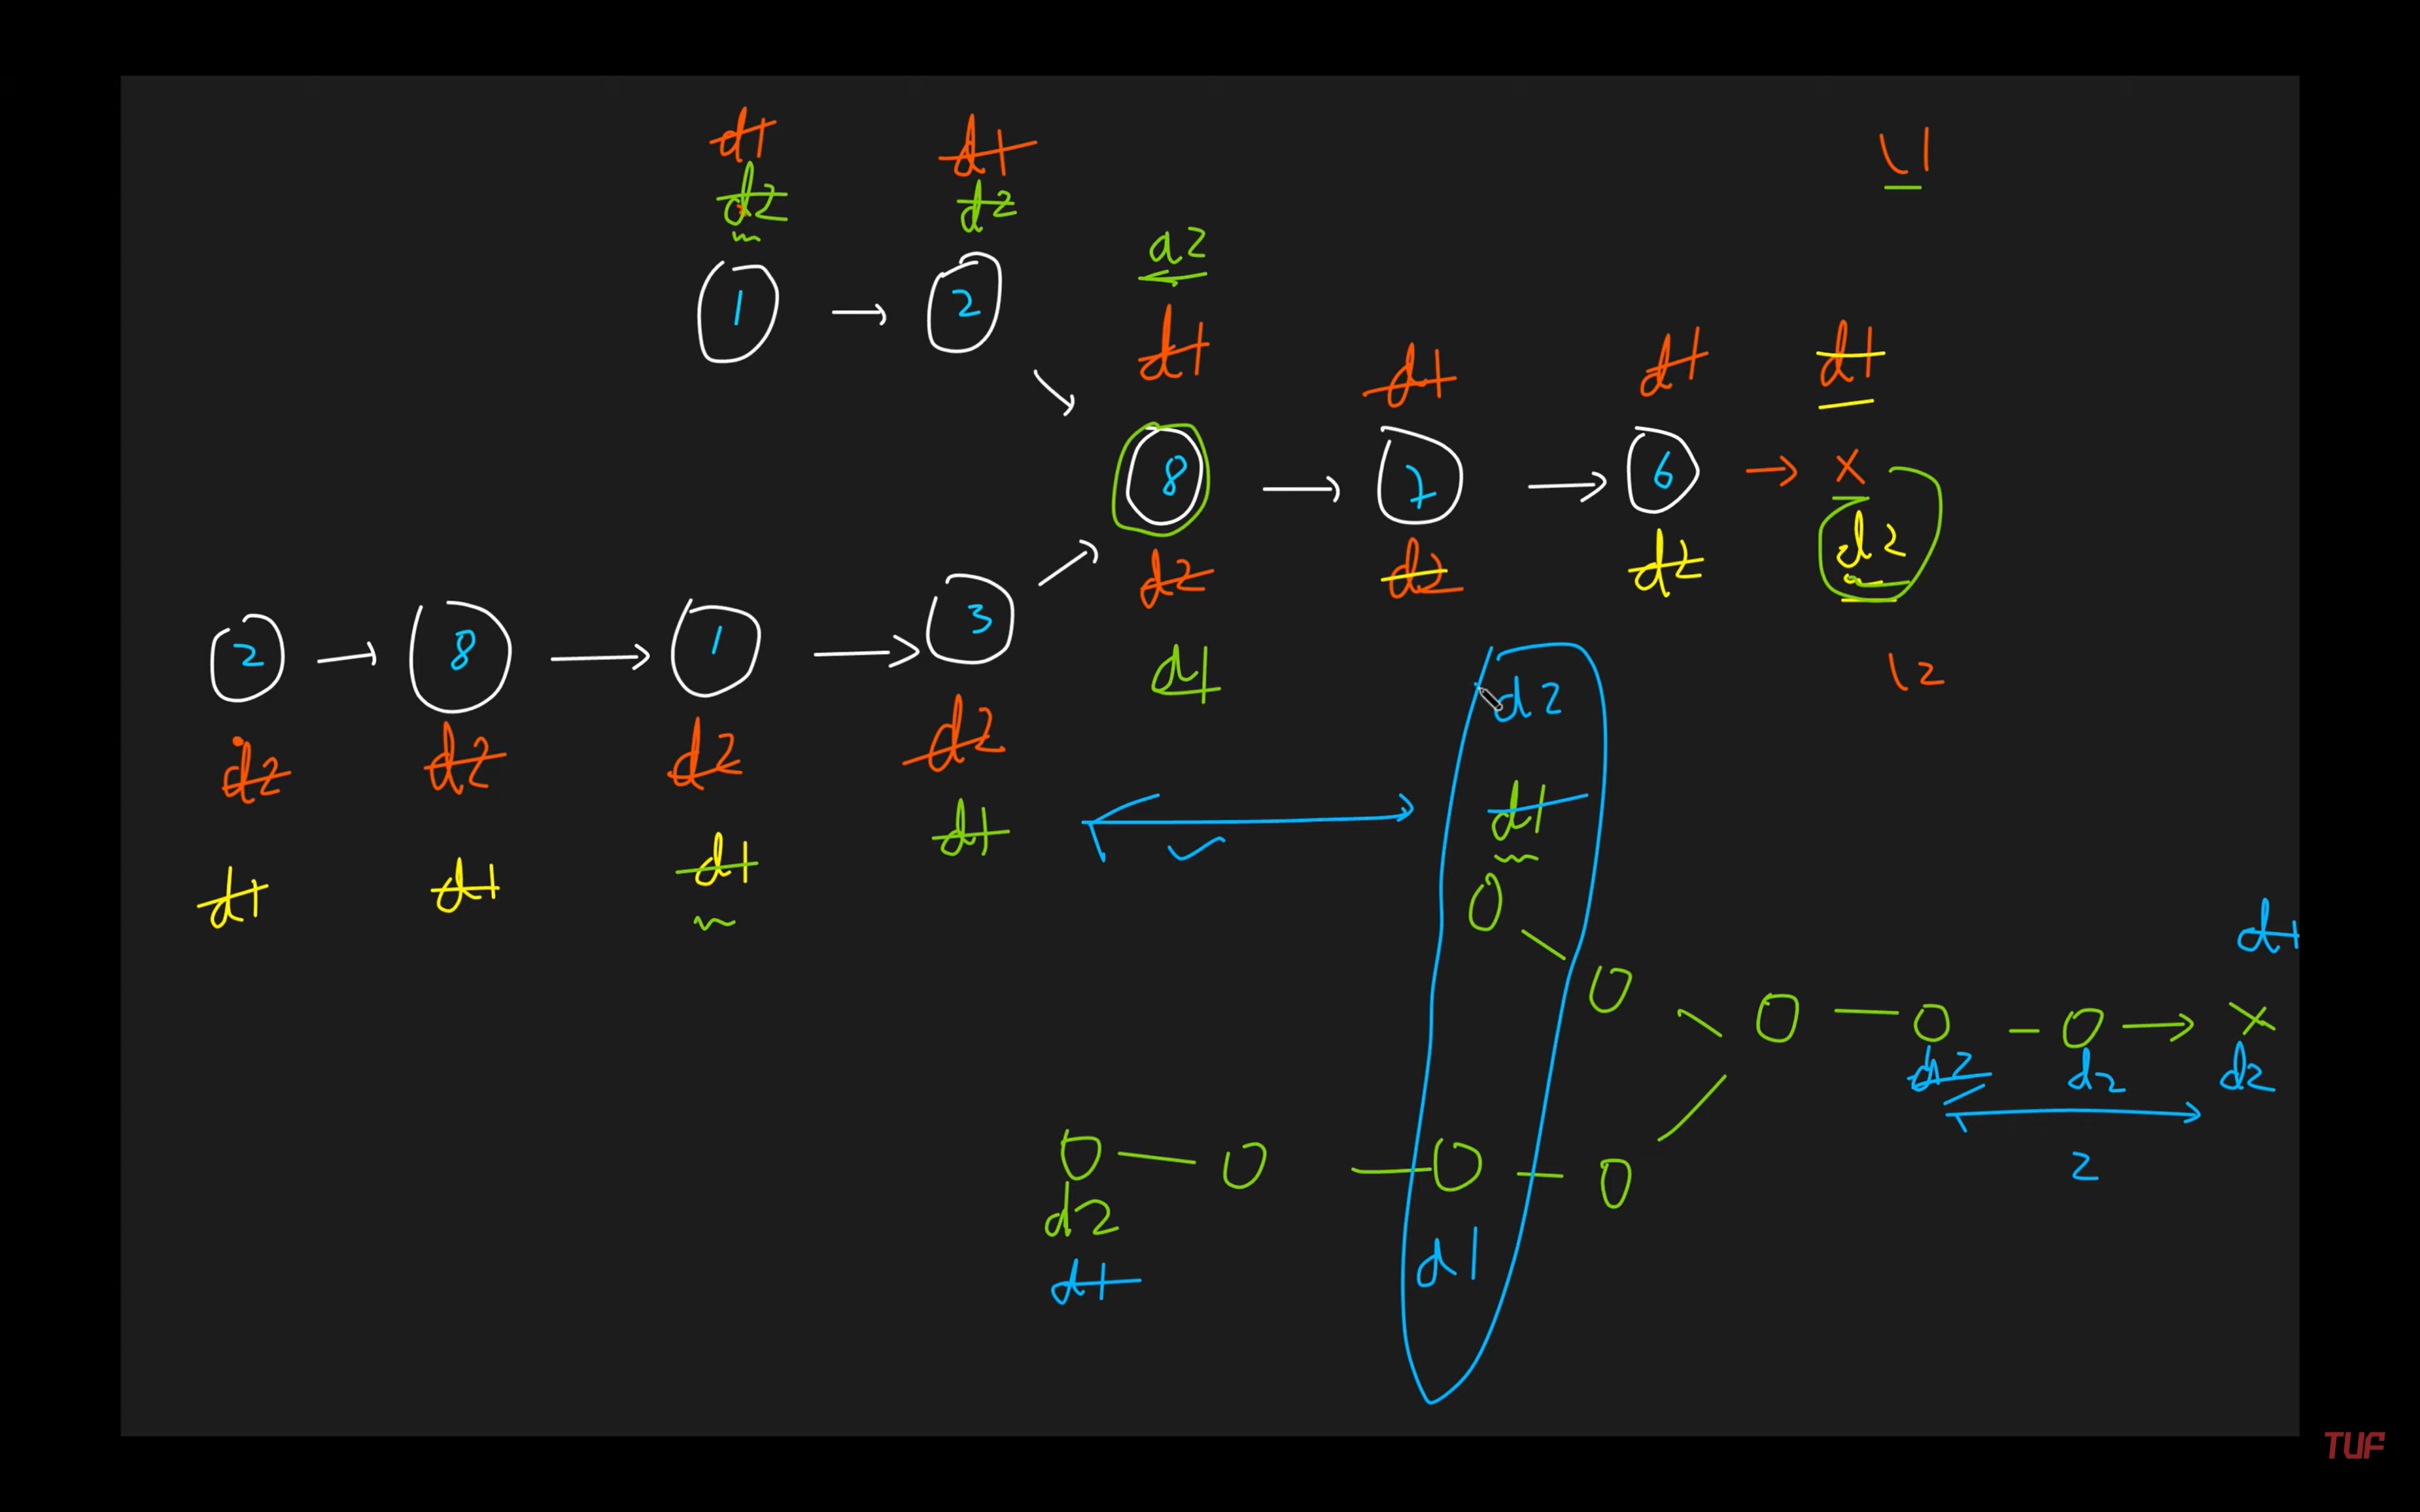 d1 d1 l1
d2 d2
d2
1 → 2
d1 d1 d1 d1
8 → 7 → 6 → x
d2 d2 d2 d2
2 → 8 → 1 → 3
d1 d2 l2
d2 d2 d2 d2
d1 d1 d1 d1 d1
d1
x
d2 d2 d2
2
d2 d1
d1
TUF